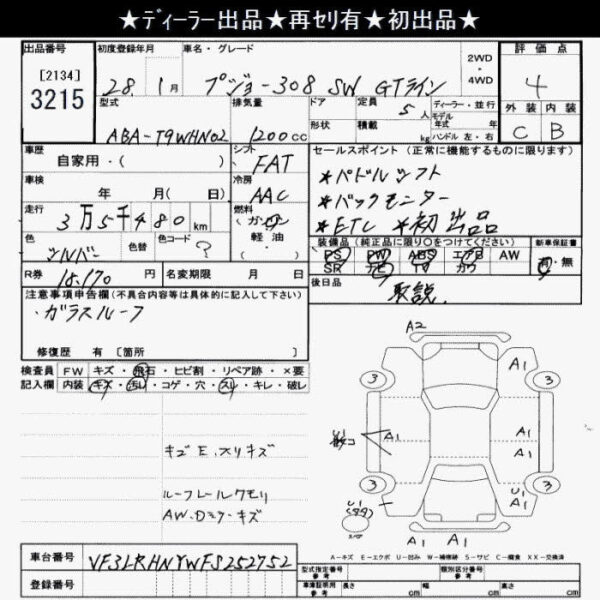 ★ディーラー出品★再セリ有★初出品★
出品番号 初度登録年月 車名・グレード 2WD・4WD 評価点
[2134]
3215 28. 1月 プジョー308 SW GTライン 4
型式 排気量 ドア 定員 5人 ディーラー・並行 外装 内装
ABA-T9WHN02 1200cc 形状 積載 kg モデル年式 年 ハンドル 左・右 C B
車歴 自家用・( ) シフト FAT セールスポイント(正常に機能するものに限ります)
車検 年 月( 日) 冷房 AAC ★パドルシフト
走行 3万5千480km 燃料 ガソリン 軽油・ ★バックモニター
色 シルバー 色替 色コード ? ★ETC ★初出品
装備品(純正品に限り○をつけてください) 新車保証書
R券 18,170円 名変期限 月 日 PS PW ABS エアB AW 有・無
SR ナビ TV カワ
注意事項申告欄(不具合内容等は具体的に記入して下さい) 後日品 取説.
・ガラスルーフ
修復歴 有[箇所
検査員記入欄 FW キズ・飛石・ヒビ割・リペア跡・×要
内装 キズ・汚レ・コゲ・穴・スレ・キレ・破レ
キゴE.スリキズ
ルーフレールクモリ
AW.Dミラーキズ
A2
A1
3 3
U1 A1 A1
A1
U1
A1
3 3
U1
スペア
A-キズ E-エクボ U-凹み W-補修跡 S-サビ C-腐食 XX-交換済
車台番号 VF3LRHNYWFS252752 型式指定番号 参考 類別区分番号 参考
登録番号 車庫証明用 参考 長さ cm 幅 cm 高さ cm